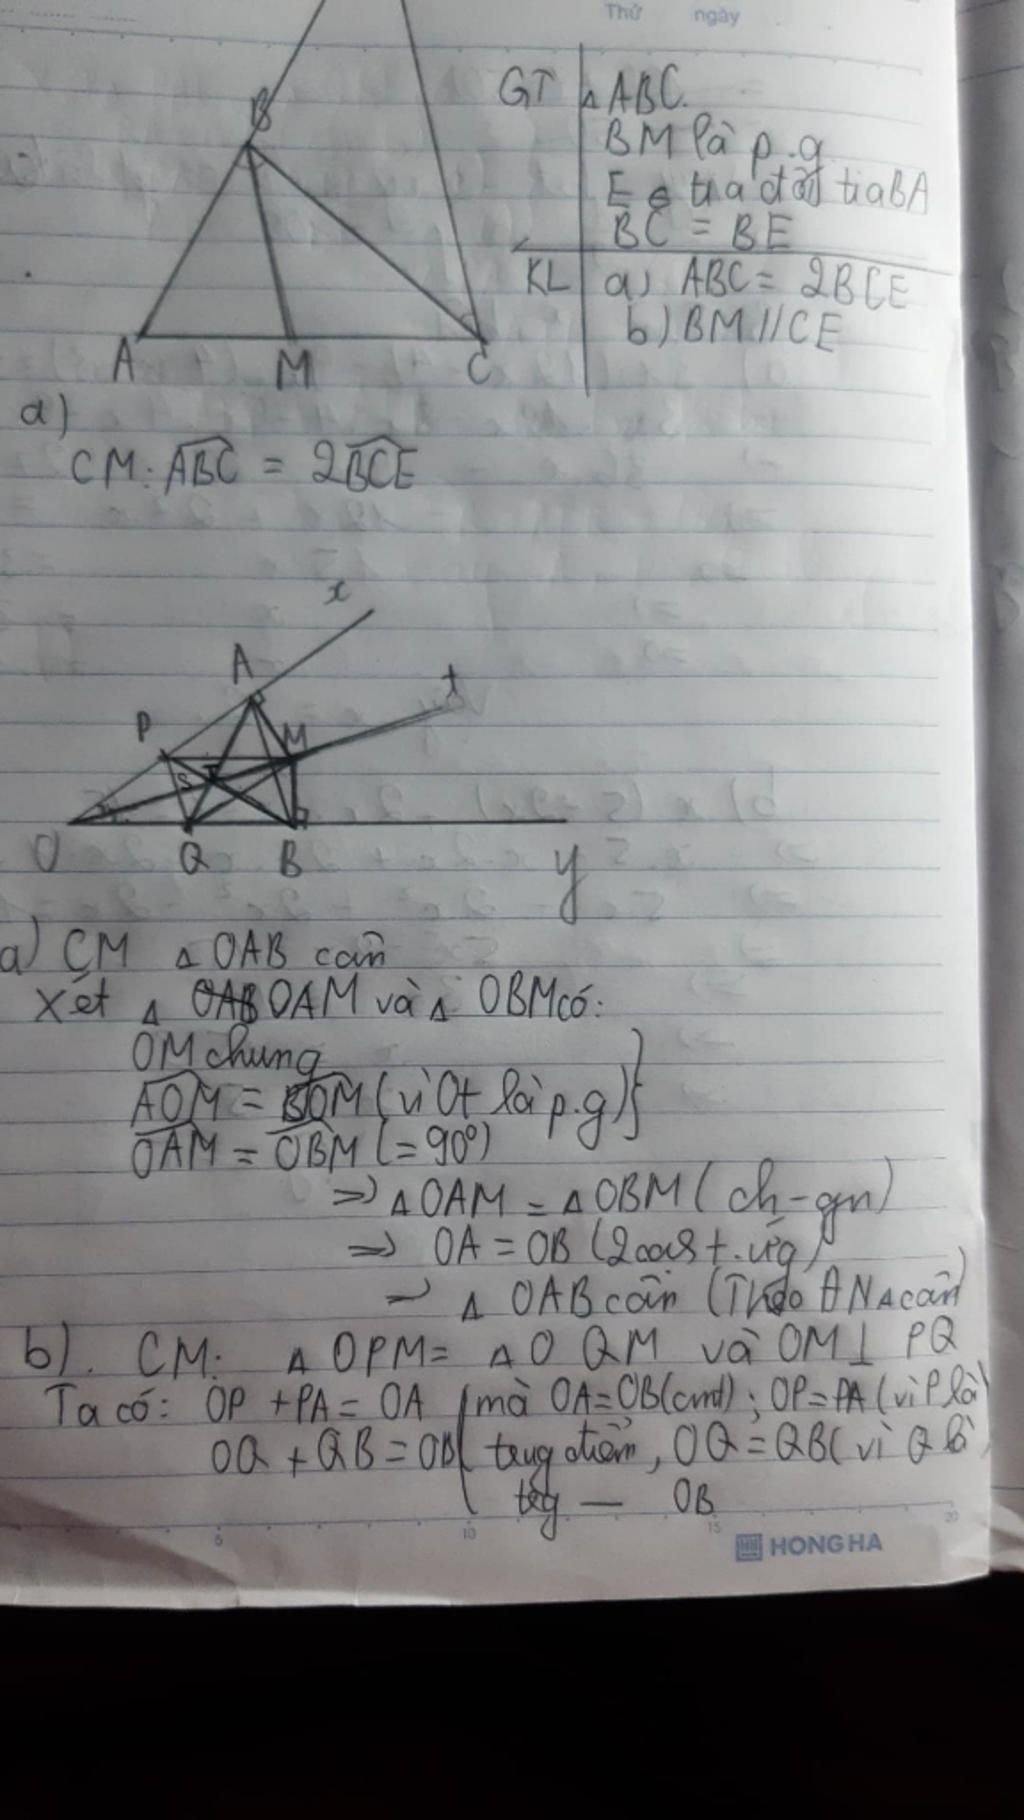 Thứ ngày
GT ΔABC.
BM là p.g
E ∈ tia đối tia BA
BC = BE
KL a) ABC = 2BCE
b) BM // CE
B
A M C
a)
CM: ABC = 2BCE
x
A
t
P
M
S I
O Q B y
a) CM Δ OAB cân
Xét Δ OAM và Δ OBM có:
OM chung
AOM = BOM (vì Ot là p.g)
OAM = OBM (= 90°)
=> ΔOAM = ΔOBM (ch - gn)
=> OA = OB (2 cạh t.ứg)
Δ OAB cân (Theo ĐN Δ cân)
b). CM: Δ OPM = Δ OQM và OM ⊥ PQ
Ta có: OP + PA = OA (mà OA = OB (cmt); OP = PA (vì P là
OQ + QB = OB trug điểm, OQ = QB (vì Q là
trg — OB
5 10 15 20
HONG HA